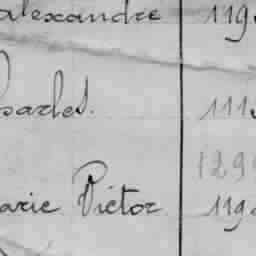 alexandre 119
harles. 111
129
arie Victor 119